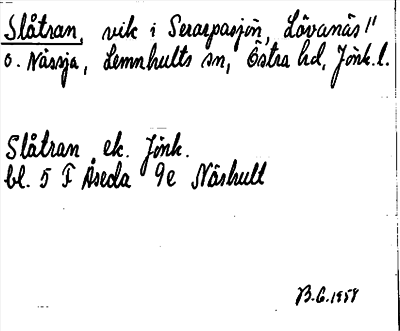 Slåtran, vik i Serarpasjön, Lövanäs"
o. Nässja, Lemnhults sn, Östra hd, Jönk.l.
Slåtran ek. Jönk.
bl. 5 F Åseda 9e Näshult
B.G.1958